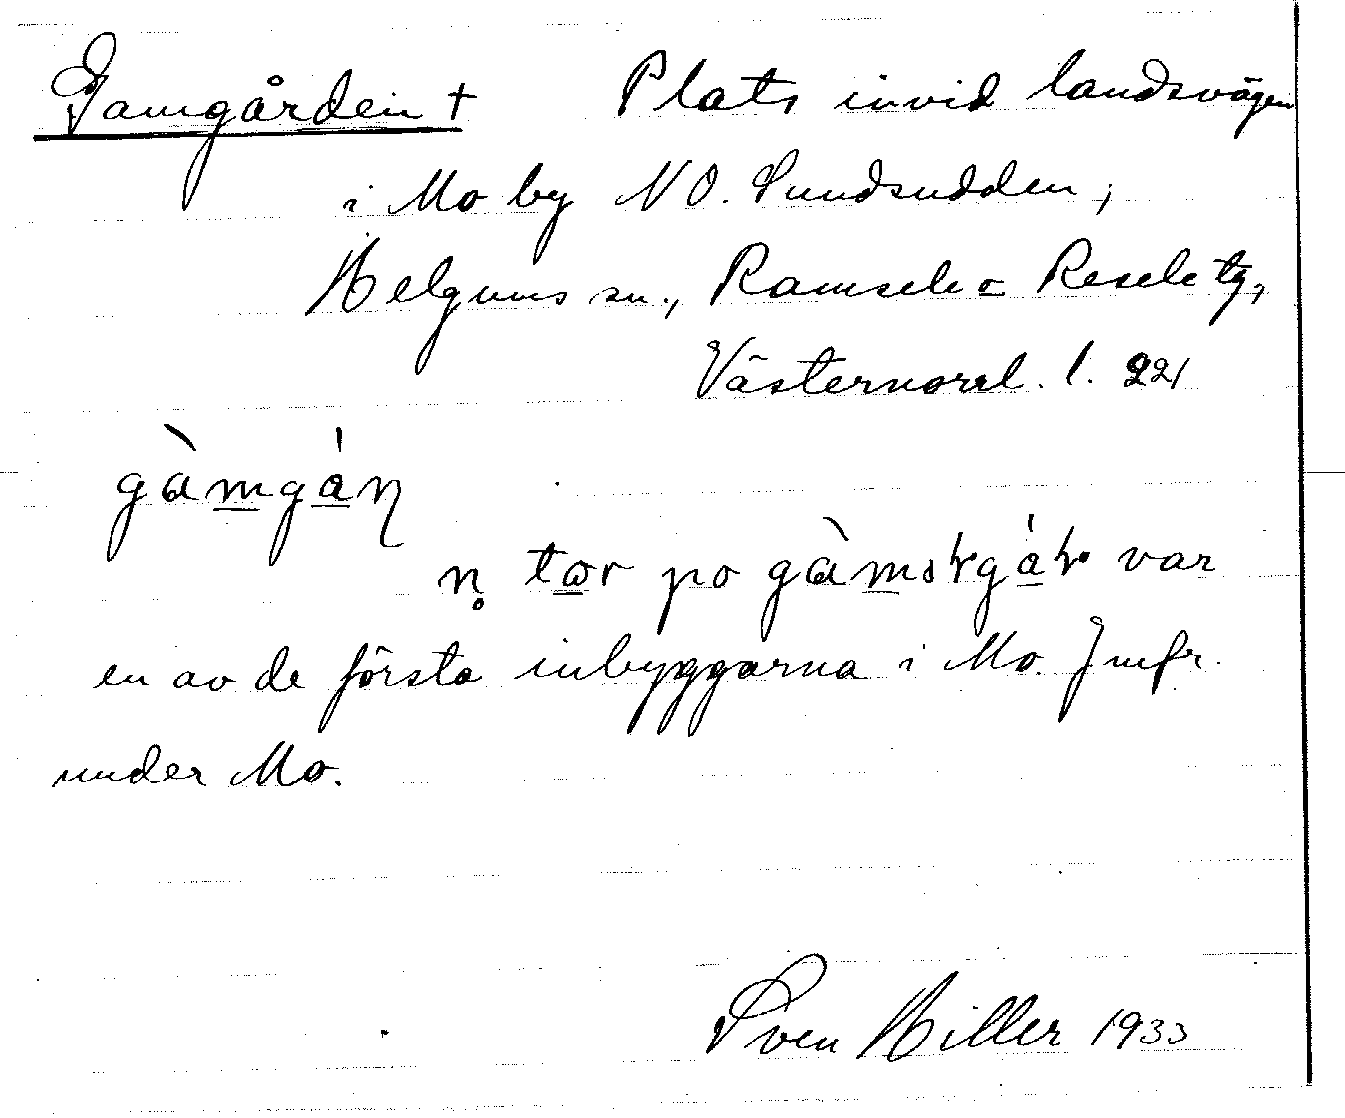 Gamgården † Plats invid landsvägen
i Mo by NO. Sundsudden,
Helgums sn., Ramsele o Resele tg,
Västernorrl. l. 221
gàmgán
n̥ tor po gàm
var
en av de första inbyggarna i Mo. Jmfr.
under Mo.
Sven Hiller 1933